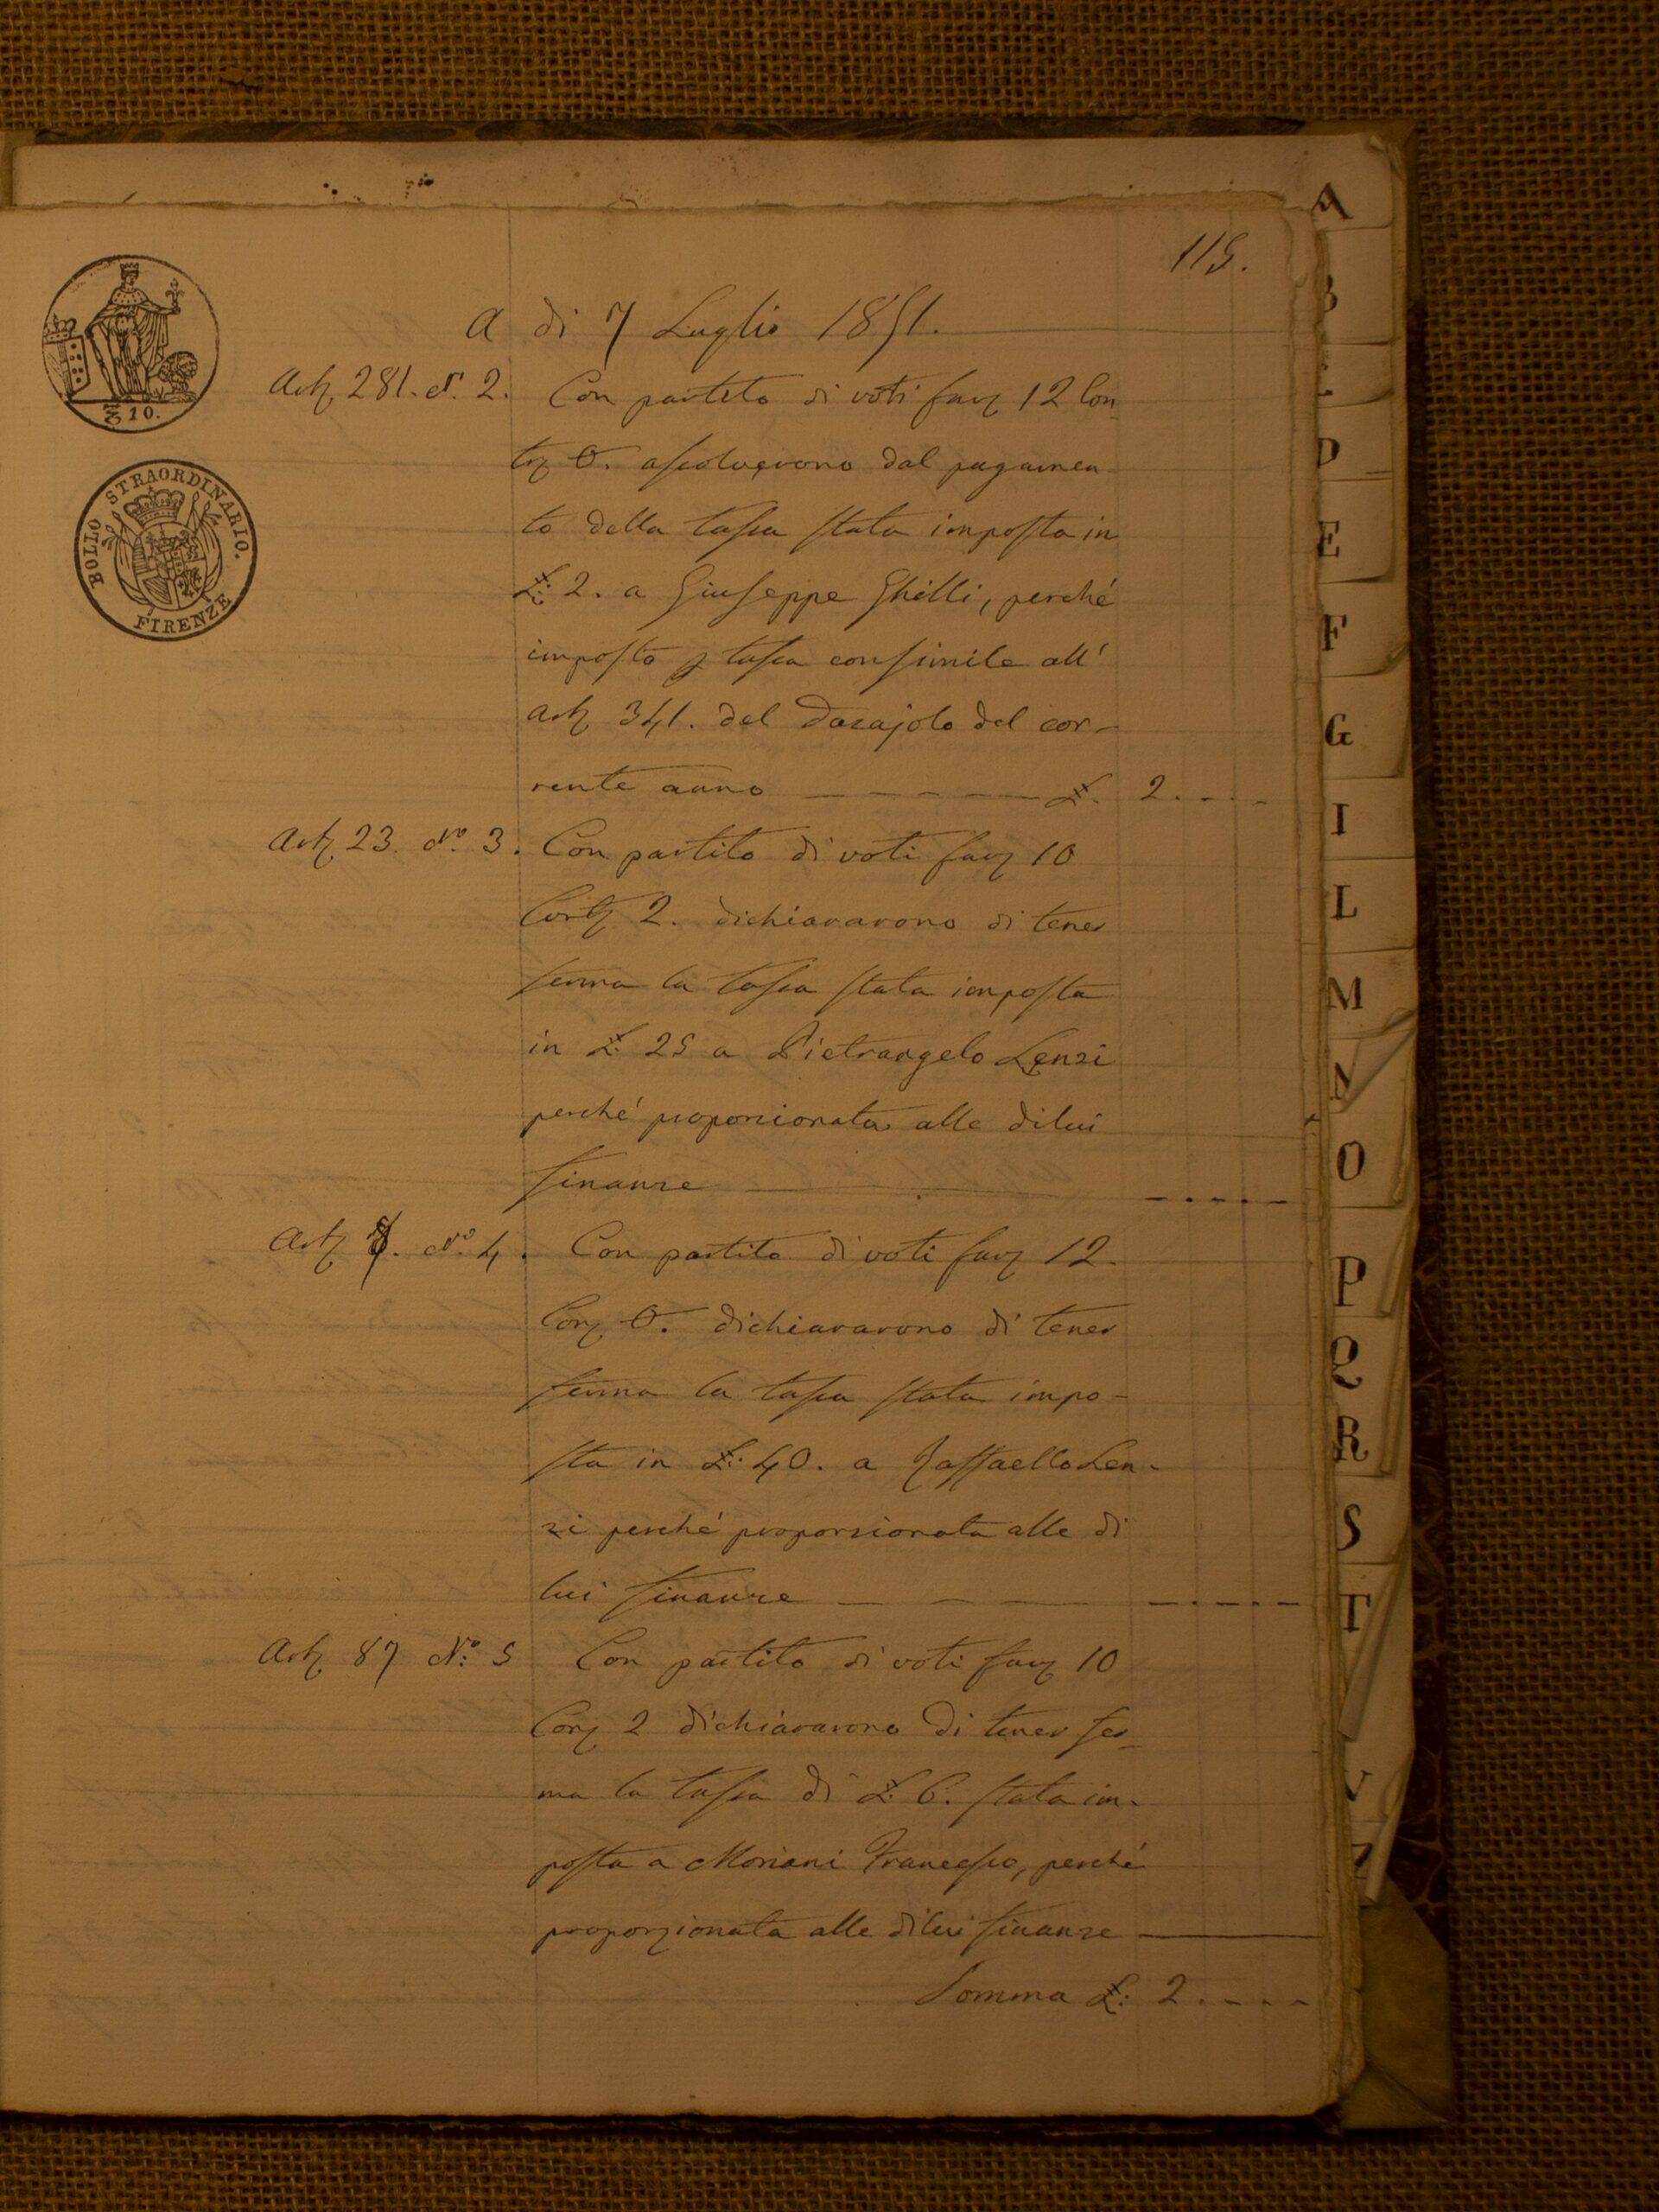 115.
A dì 7 Luglio 1851.
Artƺ 281. N. 2. Con partito di voti favƺ 12 Con
trƺ 0. assolverono dal pagamen
to della tassa stata imposta in
£: 2. a Giuseppe Ghilli, perché
imposto ꝑ tassa consimile all'
Artƺ 341. del Dazajolo del cor-
rente anno £. 2.
Artƺ 23. No. 3. Con partito di voti favƺ 10
Contƺ 2. dichiararono di tener
ferma la tassa stata imposta
in £: 25 a Pietrangelo Lenzi
perché proporzionata alle di lui
finanze
Artƺ No. 4. Con partito di voti favƺ 12.
Conƺ 0. dichiararono di tener
ferma la tassa stata impo-
sta in £: 40. a Raffaello Len-
zi perché proporzionata alle di
lui finanze
Artƺ 87 No. 5 Con partito di voti favƺ 10
Conƺ 2 dichiararono di tener fer-
ma la tassa di £: 6. stata im-
posta a Moriani Francesco, perché
proporzionata alle di lui finanze
Somma £: 2.
10.
BOLLO STRAORDINARIO.
FIRENZE
A
B
D
E
F
G
I
L
M
N
O
P
Q
R
S
T
V
Z